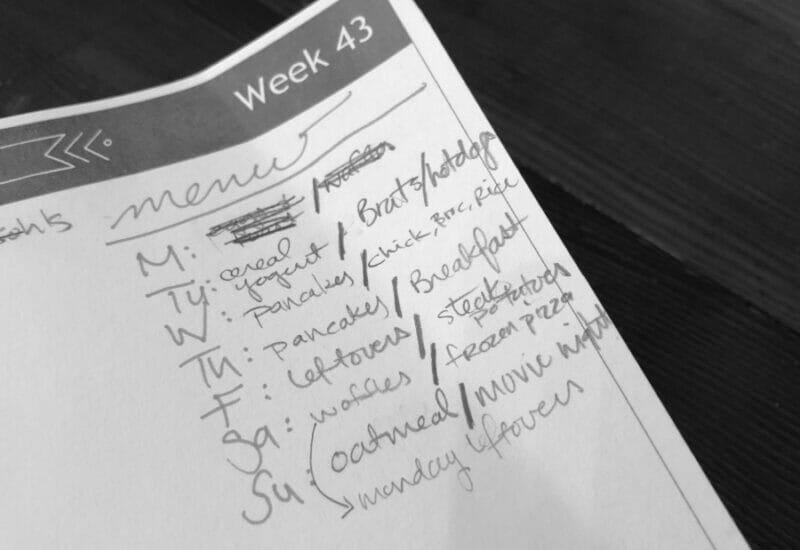 Week 43
menu
M: /
Tu: cereal / Brats/hotdogs
yogurt
W: Pancakes / chick, Broc, Rice
Th: pancakes / Breakfast
F: leftovers / steak
potatoes
Sa: waffles / frozen pizza
Su: oatmeal / movie night
monday leftovers